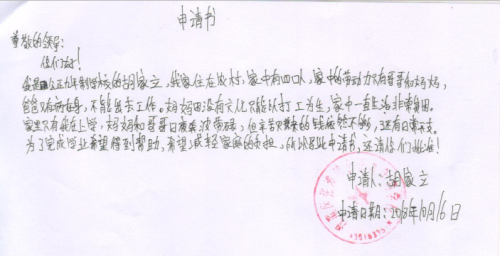 申请书
尊敬的领导:
你们好!
我是公正九年制学校的胡家立,我家住在农村,家中有四口人,家中的劳动力只有哥哥和妈妈,
爸爸有病在身,不能出去工作。妈妈由没有文化只能以打工为生,家中一直生活非常贫困。
家里只有我在上学,妈妈和哥哥日夜奔波劳碌,但辛苦带来的钱依然不够,还有日常开支。
为了完成学业希望得到帮助,希望减轻家庭的负担,所以呈此申请书,还请你们批准!
申请人:胡家立
申请日期:2018年10月16日